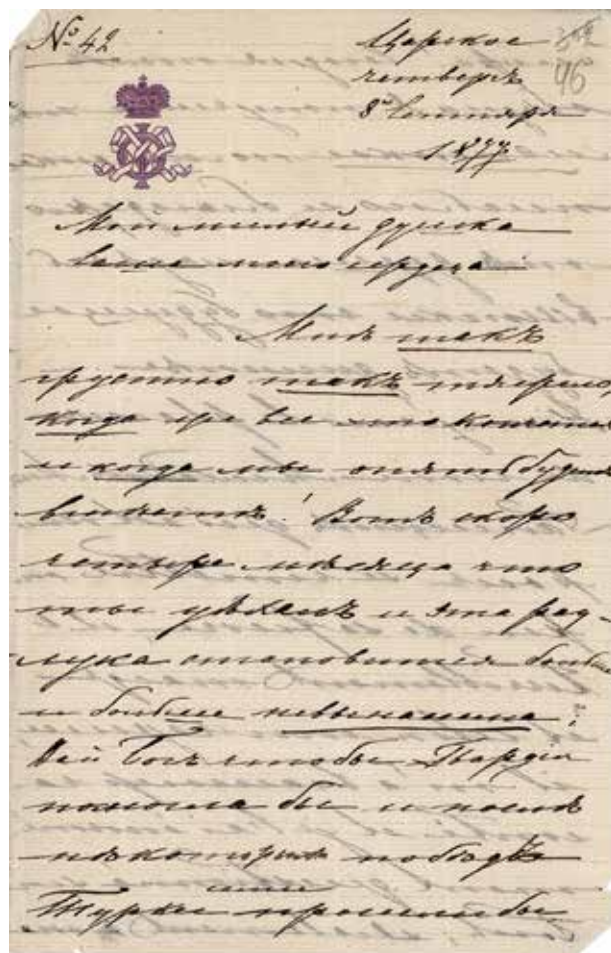 № 42
Царское
46
четвергъ
8го Сентября
1877.
Мой милый душка
ваше моего сердца!
Мнѣ такъ
грустно такъ тяжело,
когда же все это кончится
и когда мы опять будемъ
вмѣстѣ! Вотъ скоро
четыре мѣсяца что
ты уѣхалъ и эта раз-
лука становится больше
и больше невыносима!
Дай Богъ чтобы Гвардія
помогла бы и послѣ
нѣкоторыхъ побѣдъ
Турки просили бы